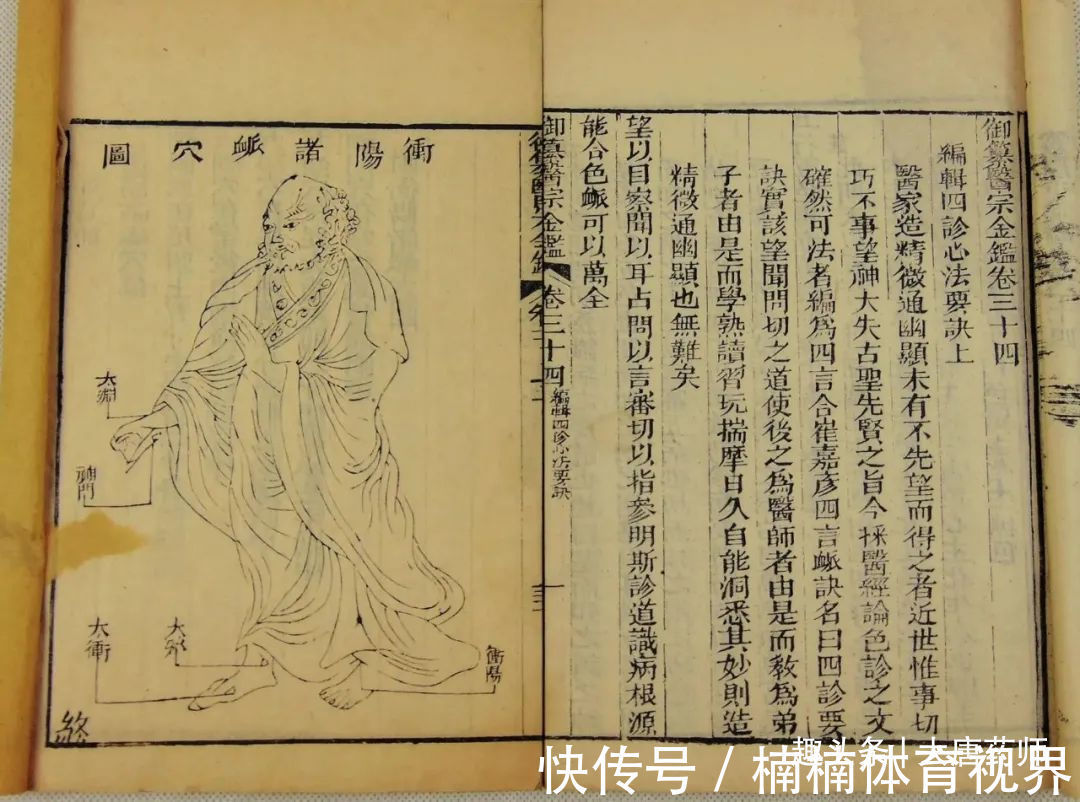 御纂醫宗金鑑卷三十四
編輯四診心法要訣上
醫家造精微通幽顯未有不先望而得之者近世惟事切
巧不事望神大失古聖先賢之旨今採醫經論色診之文
確然可法者編為四言合崔嘉彥四言脈訣名曰四診要
訣實該望聞問切之道使後之為醫師者由是而教為弟
子者由是而學熟讀習玩揣摩日久自能洞悉其妙則造
精微通幽顯也無難矣
望以目察聞以耳占問以言審切以指參明斯診道識病根源
能合色脈可以萬全
御纂醫宗金鑑
卷三十四
編輯四診心法要訣
衝陽諸脈穴圖
太淵
神門
太衝
太谿
衝陽
終
趣头条
大唐药师
快传号 / 楠楠体育视界